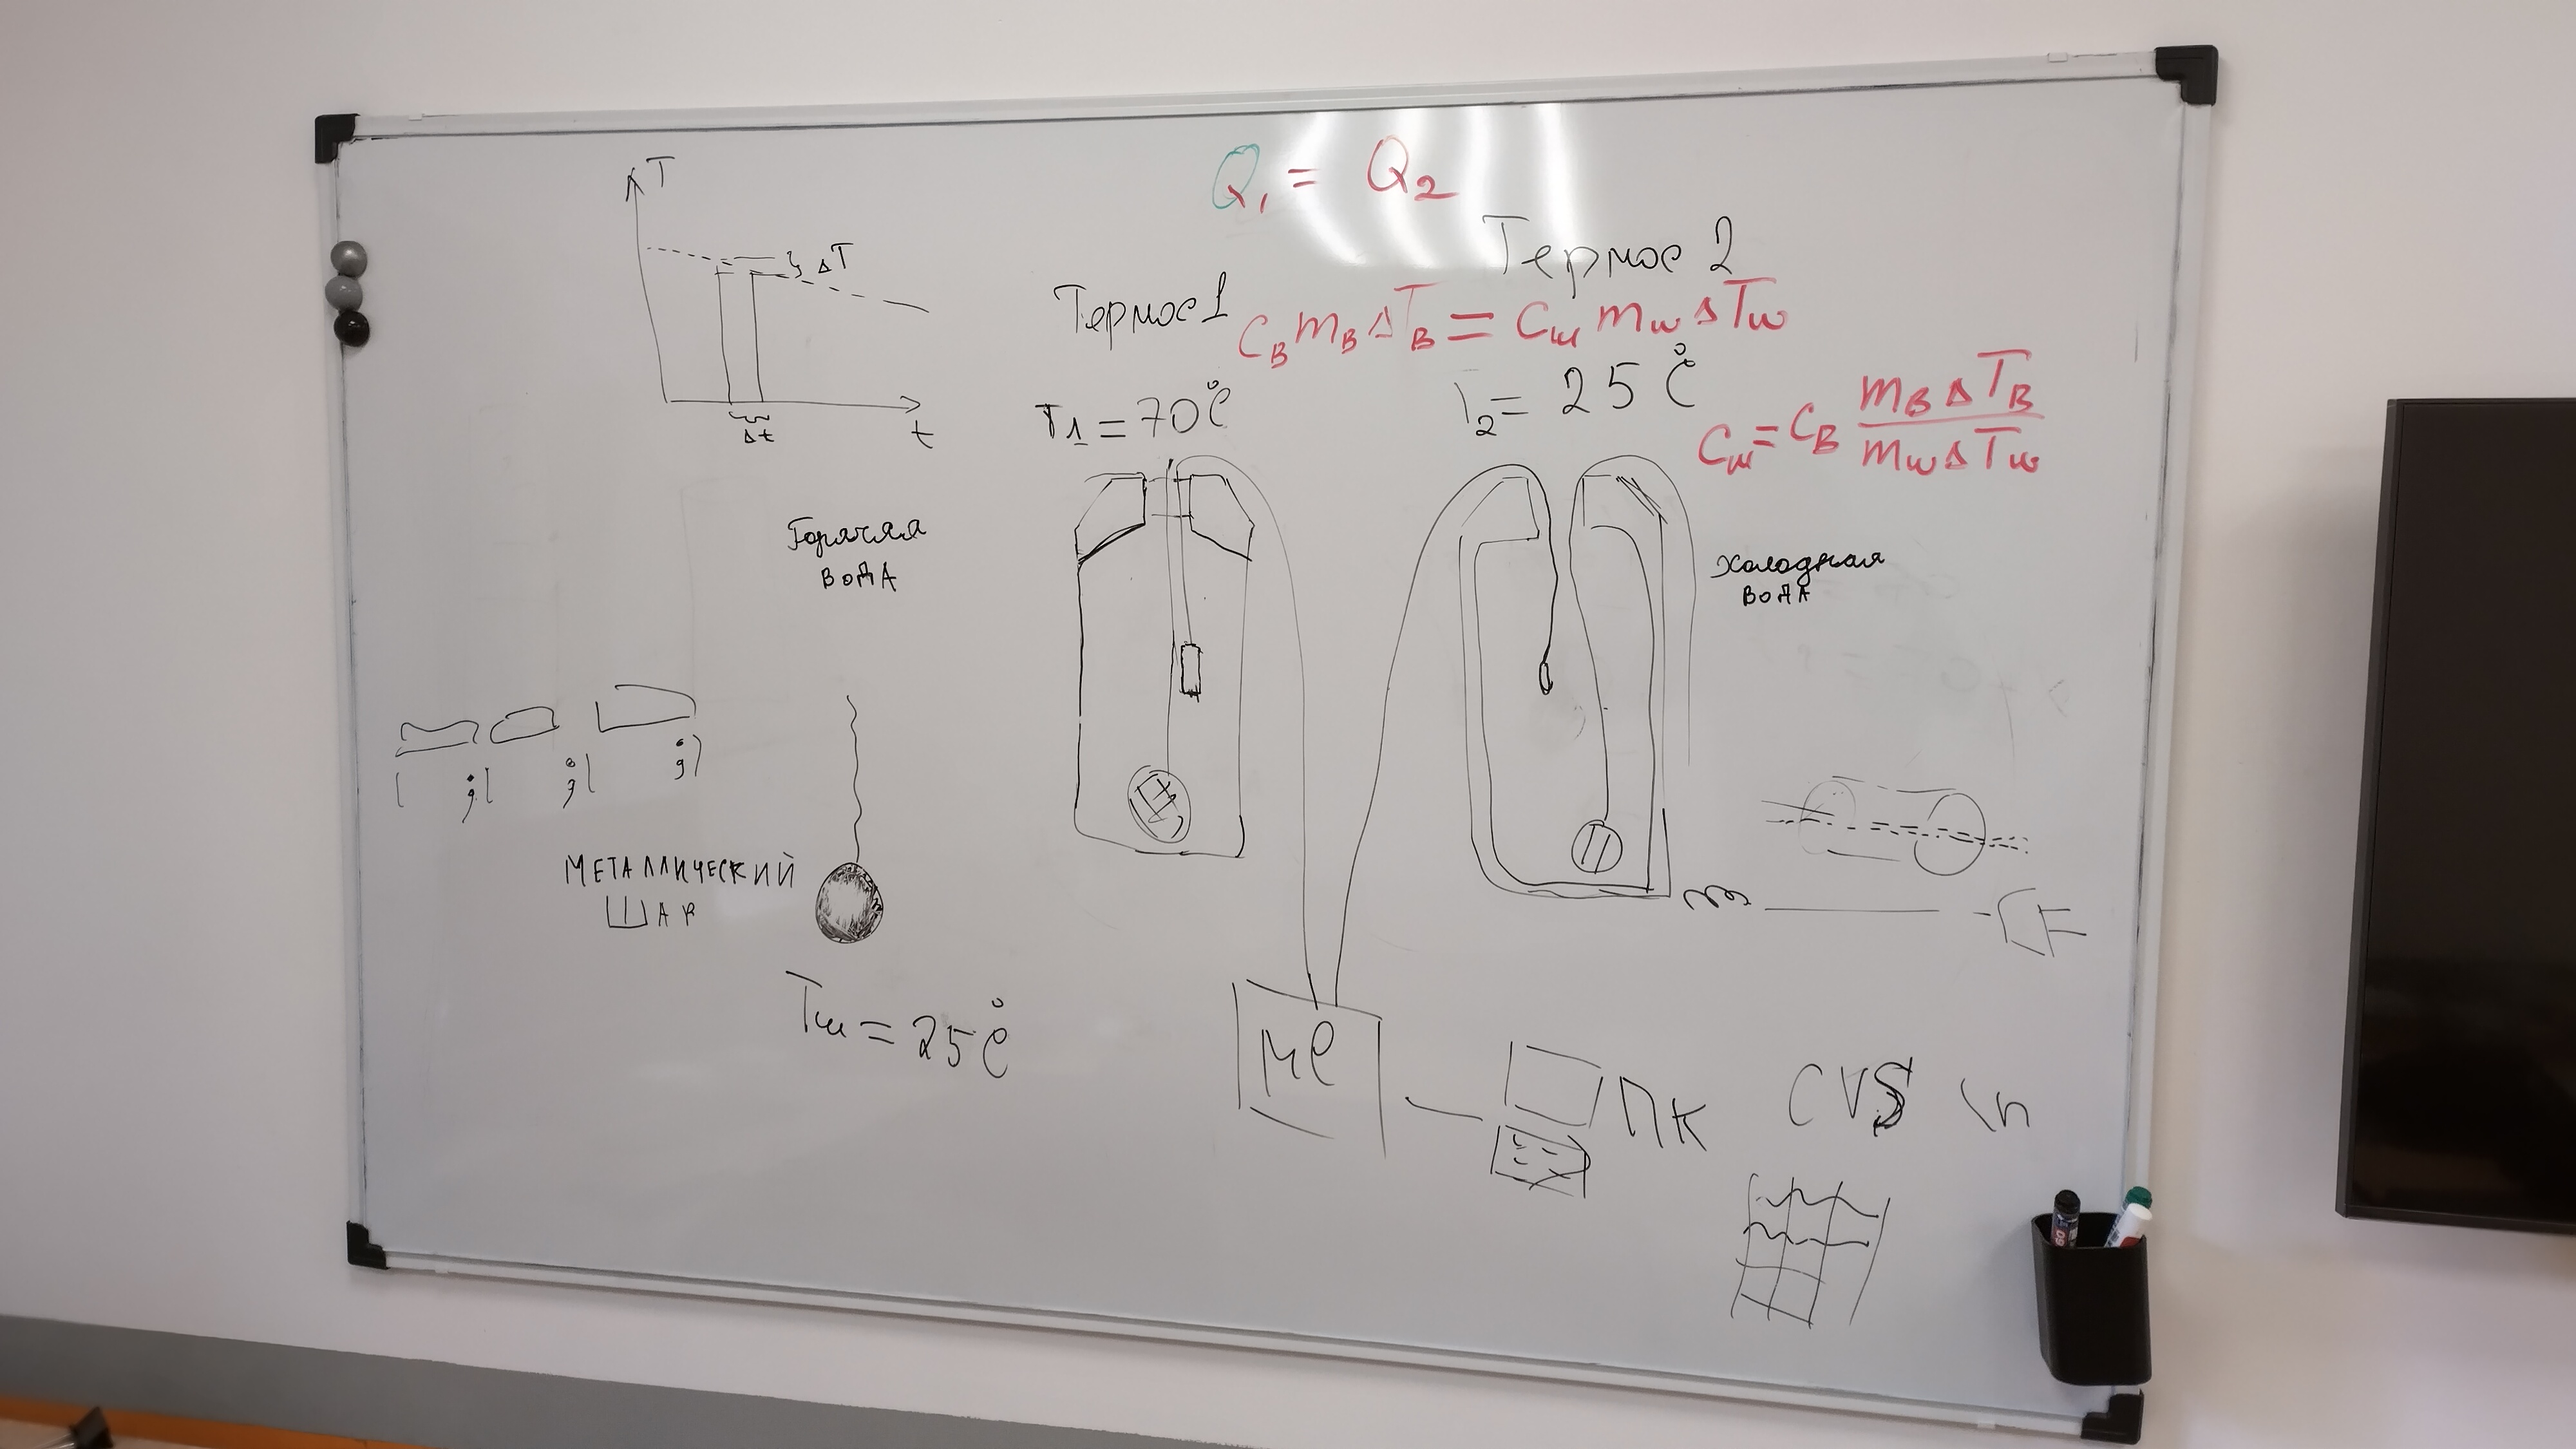 T
ΔT
Δt
t
Q₁ = Q₂
Термос 1
Термос 2
C_B m_B ΔT_B = C_ш m_ш ΔT_ш
T₁ = 70°C
T₂ = 25°C
C_ш = C_B m_B ΔT_B / m_ш ΔT_ш
Горячая
вода
Холодная
вода
Металлический
шар
T_ш = 25°C
МС
ПК
CVS \n